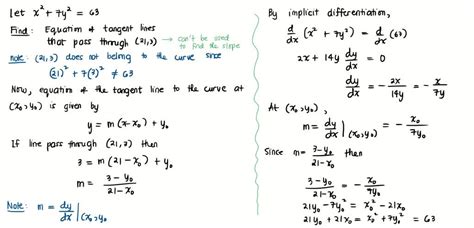 let x² + 7y² = 63
Find: Equation of tangent lines
that pass through (21,3) → can't be used
to find the slope
note: (21,3) does not belong to the curve since
(21)² + 7(3)² ≠ 63
Now, equation of the tangent line to the curve at
(x₀,y₀) is given by
y = m(x-x₀) + y₀
If line pass through (21,3) then
3 = m(21-x₀) + y₀
m = \frac{3-y₀}{21-x₀}
Note: m = \frac{dy}{dx}|(x₀,y₀
By implicit differentiation,
\frac{d}{dx}(x² + 7y²) = \frac{d}{dx}(63)
2x + 14y \frac{dy}{dx} = 0
\frac{dy}{dx} = -\frac{2x}{14y} = -\frac{x}{7y}
At (x₀,y₀),
m = \frac{dy}{dx}|(x₀,y₀) = -\frac{x₀}{7y₀}
Since m = \frac{3-y₀}{21-x₀} then
\frac{3-y₀}{21-x₀} = -\frac{x₀}{7y₀}
21y₀ - 7y₀² = x₀² - 21x₀
21y₀ + 21x₀ = x₀² + 7y₀² = 63